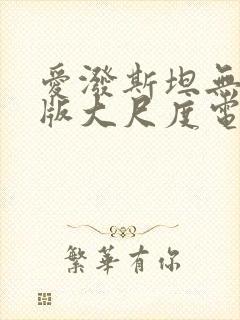 愛潑斯坦無
版大尺度電
繁華有你